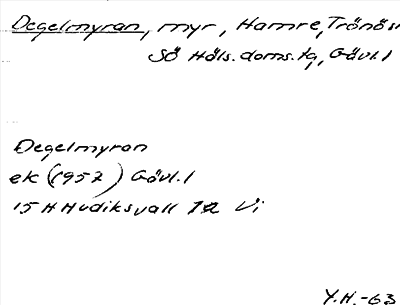 Degelmyran, myr, Hamre, Trönös
Sö Häls. doms. tg, Gävl. l
Degelmyran
ek (1957) Gävl. l
15 H Hudiksvall 1a Vi
Y.H.-63